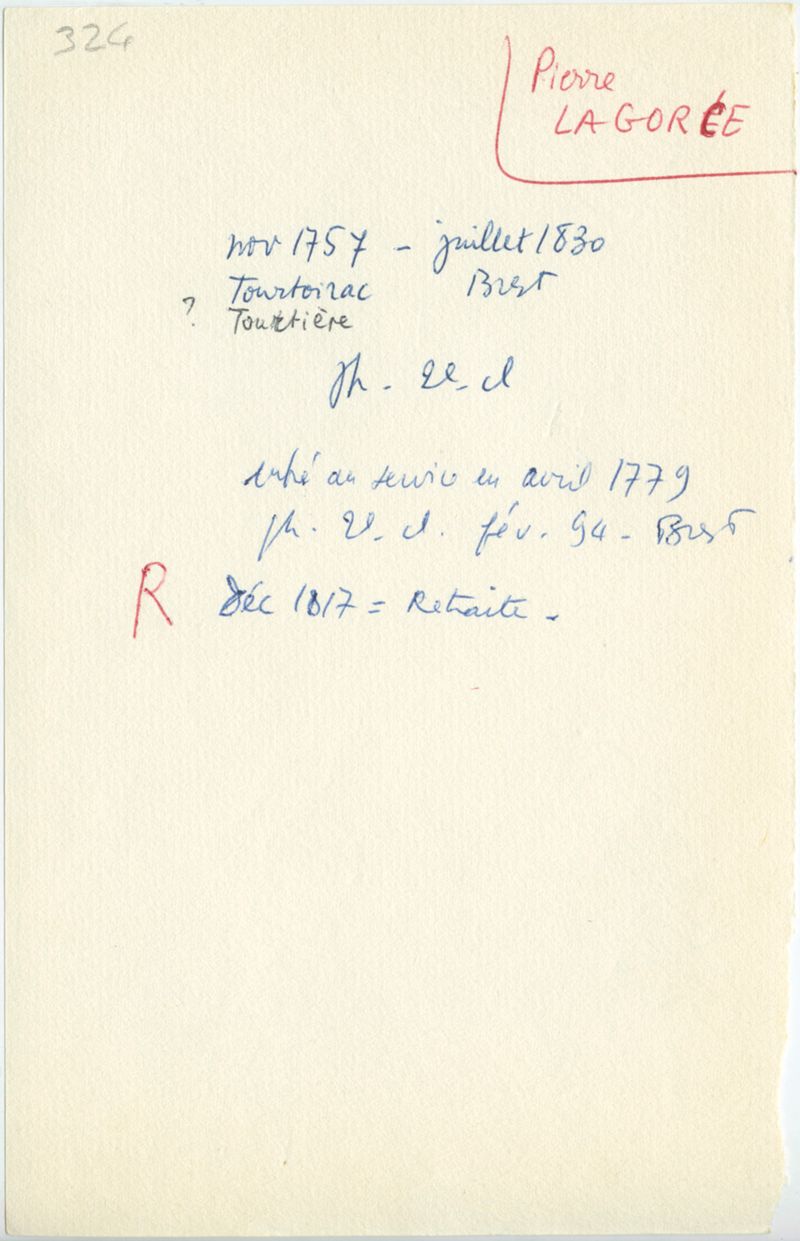 324
Pierre
LAGORCE
nov 1757 - juillet 1830
Tourtoirac Brest
? Tourtière
ph. 2e. cl
entré au service en avril 1779
ph. 2e. cl. fév. 94 - Brest
R Déc 1817 = Retraite -